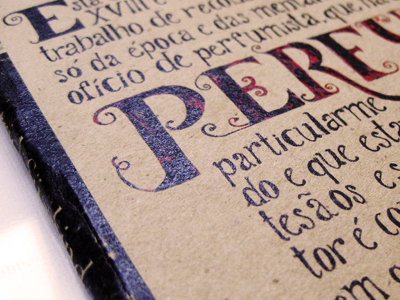 Esta
XVIII e
trabalho de recons
só da época e das menta
ofício de perfumista que há
PEREV
particularme
do e que esta
tesãos e s
tor é co